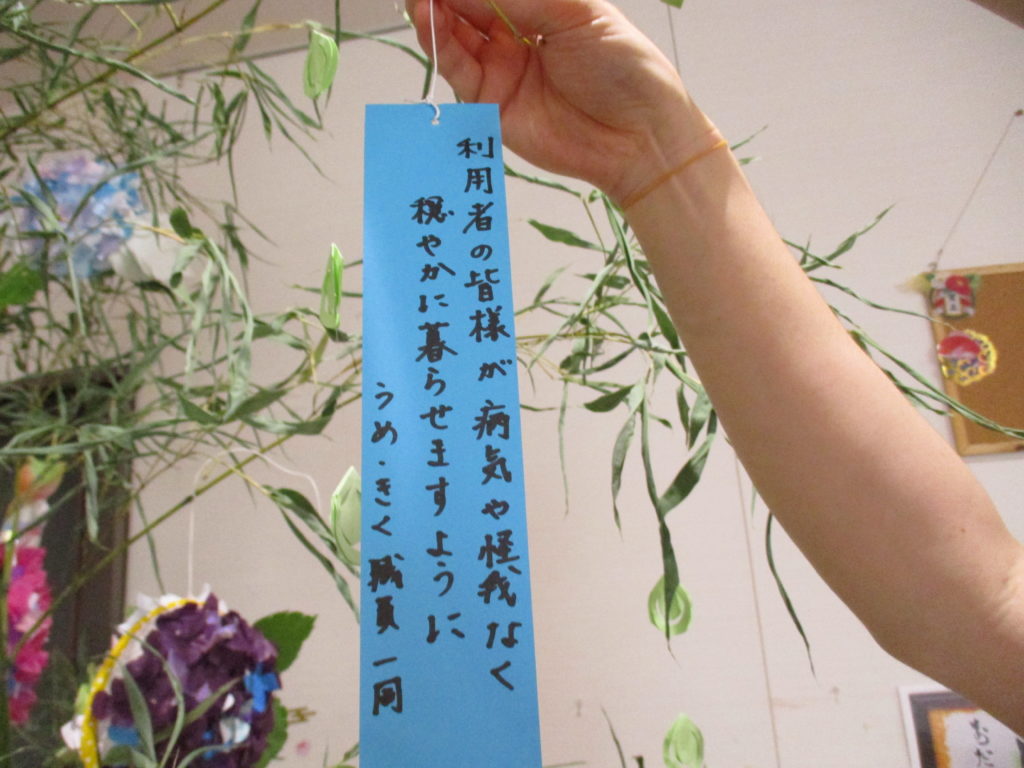 利用者の皆様が病気や怪我なく
穏やかに暮らせますように
うめ・きく職員一同